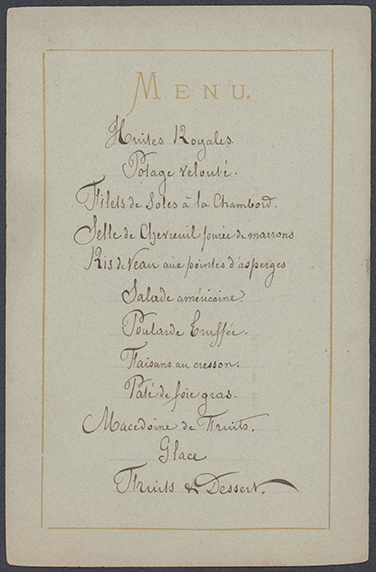 MENU.
Huitres Royales.
Potage velouté.
Filets de Soles à la Chambord.
Selle de Chevreuil purée de marrons
Ris de Veau aux pointes d'asperges
Salade américaine
Poularde truffée.
Faisans au cresson.
Paté de foie gras.
Macedoine de Fruits.
Glace
Fruits & Dessert.